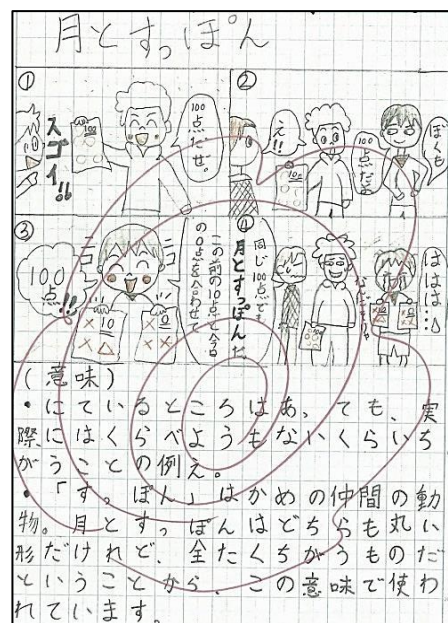 月とすっぽん
①
100点だぜ。
100
スゴイ!!
②
ぼくも
100点だよ
え!!
100
③
100点!!
ニコ
ニコ
この前の10点と今日
の0点を合わせて
10
0
④
同じ100点で
月とすっぽんだ
ははは…
(意味)
・にているところはあっても、実
際にはくらべようもないくらいち
がうことの例え。
・「すっぽん」はかめの仲間の動
物。月とすっぽんはどちらも丸い
形だけれど、全たくちがうものだ
ということから、この意味で使わ
れています。